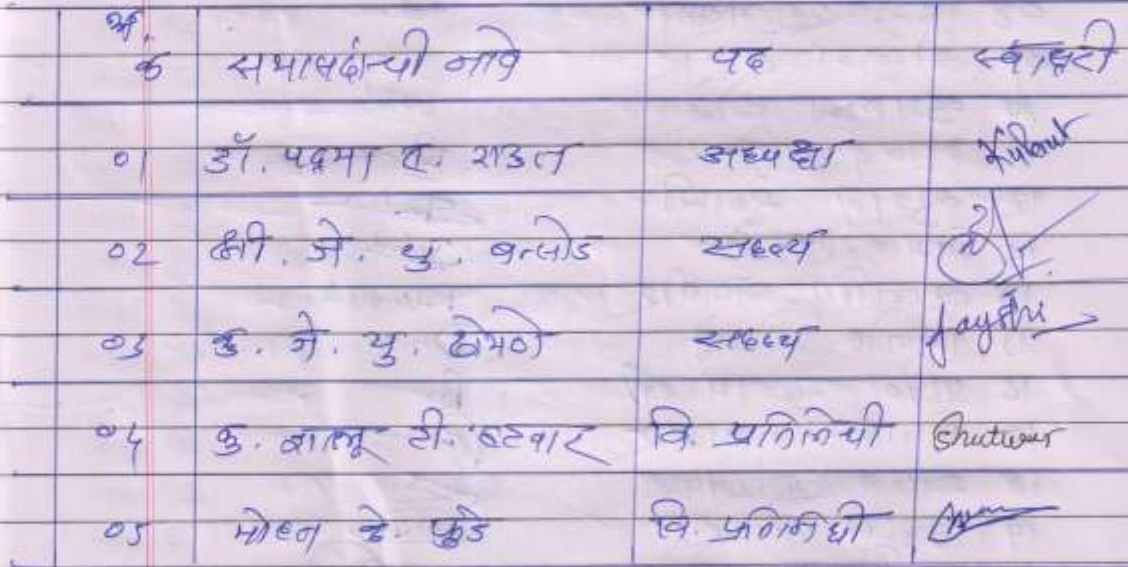 अ.
क्र सभासदांची नावे पद स्वाक्षरी
01 डॉ. पद्मा ए. राऊत अध्यक्षा
02 श्री. जे. यु. बन्सोड सदस्य
03 कु. जे. यु. ढोमणे सदस्य Jayshri
04 कु. शालू टी. हटवार वि. प्रतिनिधी Shutwar
05 मोहन के. फुंडे वि. प्रतिनिधी